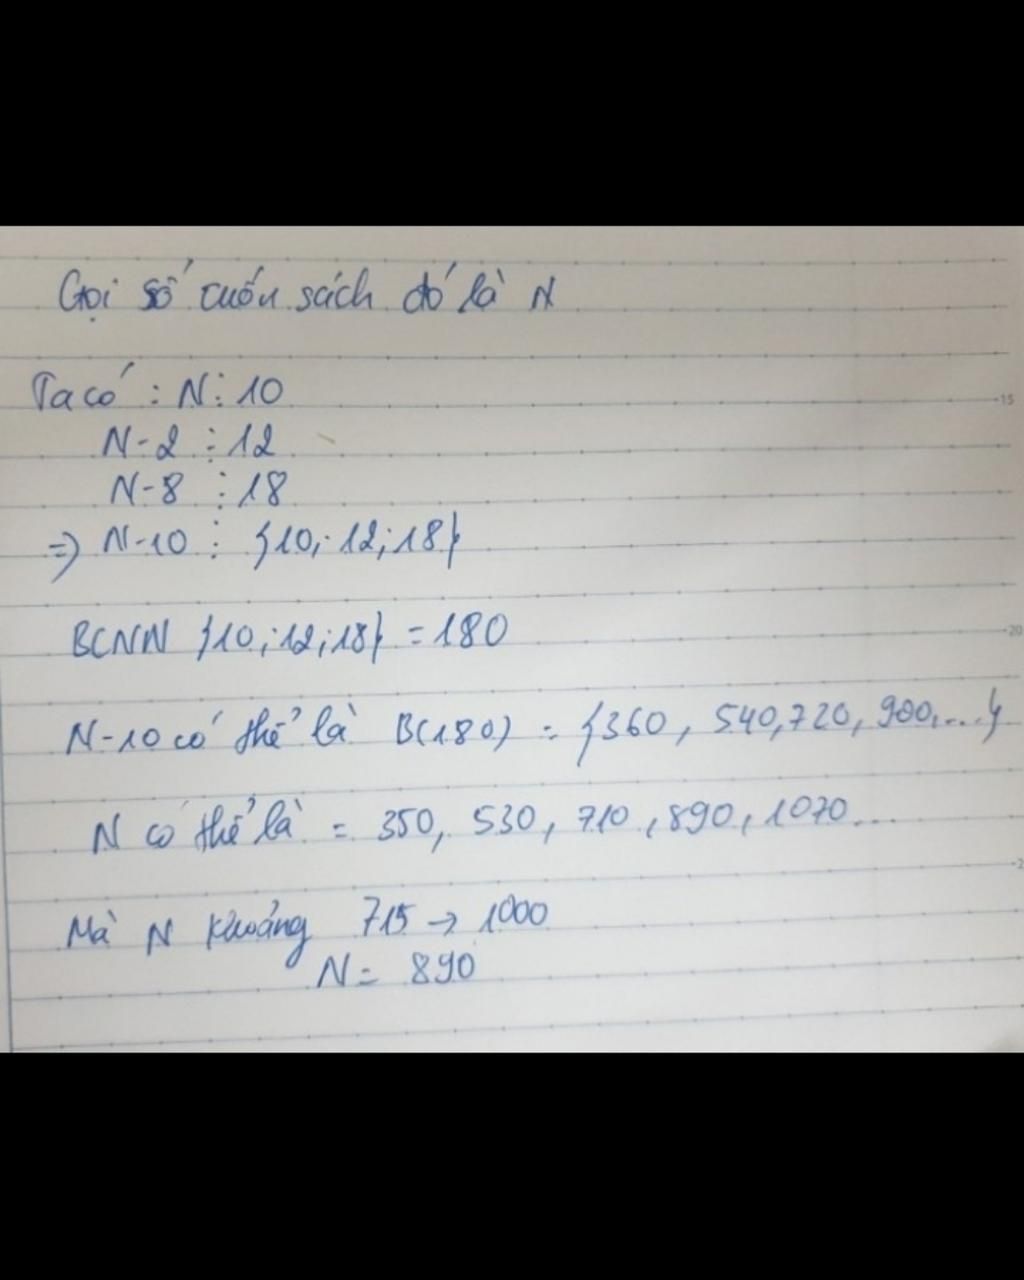 Gọi số cuốn sách đó là N
Ta có : N ⋮ 10
N-2 ⋮ 12
N-8 ⋮ 18
=> N-10 ⋮ {10; 12; 18}
BCNN {10; 12; 18} = 180
N-10 có thể là B(180) = {360, 540, 720, 900, ...}
N có thể là = 350, 530, 710, 890, 1070...
Mà N khoảng 715 → 1000
N = 890
15
20
2